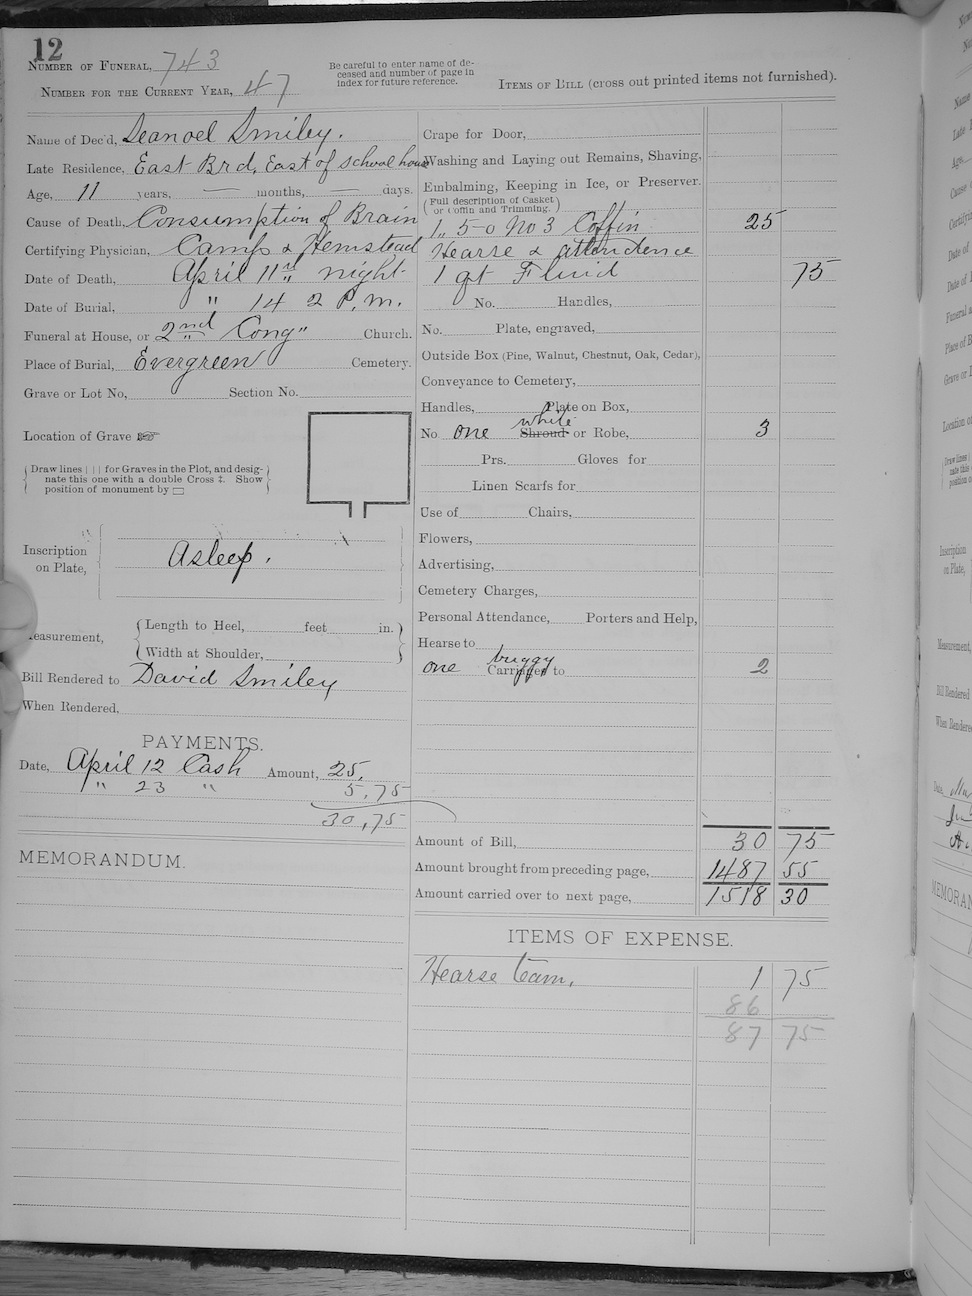 12
NUMBER OF FUNERAL, 743
NUMBER FOR THE CURRENT YEAR, 47
Be careful to enter name of de-
ceased and number of page in
index for future reference.
ITEMS OF BILL (cross out printed items not furnished).
Name of Dec'd, Leanoel Smiley.
Late Residence, East Brd, East of school house
Age, 11 years, — months, — days.
Cause of Death, Consumption of Brain
Certifying Physician, Camp & Hemstead
Date of Death, April 11" night-
Date of Burial, " 14 2 P.m.
Funeral at House, or 2nd Cong" Church.
Place of Burial, Evergreen Cemetery.
Grave or Lot No, Section No.
Location of Grave ☞
Draw lines | | | for Graves in the Plot, and desig-
nate this one with a double Cross ‡. Show
position of monument by ▭
Inscription
on Plate,
Asleep.
Measurement,
Length to Heel, feet in.
Width at Shoulder,
Bill Rendered to David Smiley
When Rendered,
PAYMENTS.
Date, April 12 Cash Amount, 25.
" 23 " 5,75
30,75
MEMORANDUM.
Crape for Door,
Washing and Laying out Remains, Shaving,
Embalming, Keeping in Ice, or Preserver.
(Full description of Casket
or Coffin and Trimming.)
1,, 5-0 No 3 Coffin 25
Hearse & attendence
1 qt Fluid 75
No. Handles,
No. Plate, engraved,
Outside Box (Pine, Walnut, Chestnut, Oak, Cedar),
Conveyance to Cemetery,
Handles, Plate on Box,
white
No one Shroud or Robe, 3
Prs. Gloves for
Linen Scarfs for
Use of Chairs,
Flowers,
Advertising,
Cemetery Charges,
Personal Attendance, Porters and Help,
Hearse to
buggy
one Carriages to 2
Amount of Bill, 30 75
Amount brought from preceding page, 1487 55
Amount carried over to next page, 1518 30
ITEMS OF EXPENSE.
Hearse team, 1 75
86
87 75